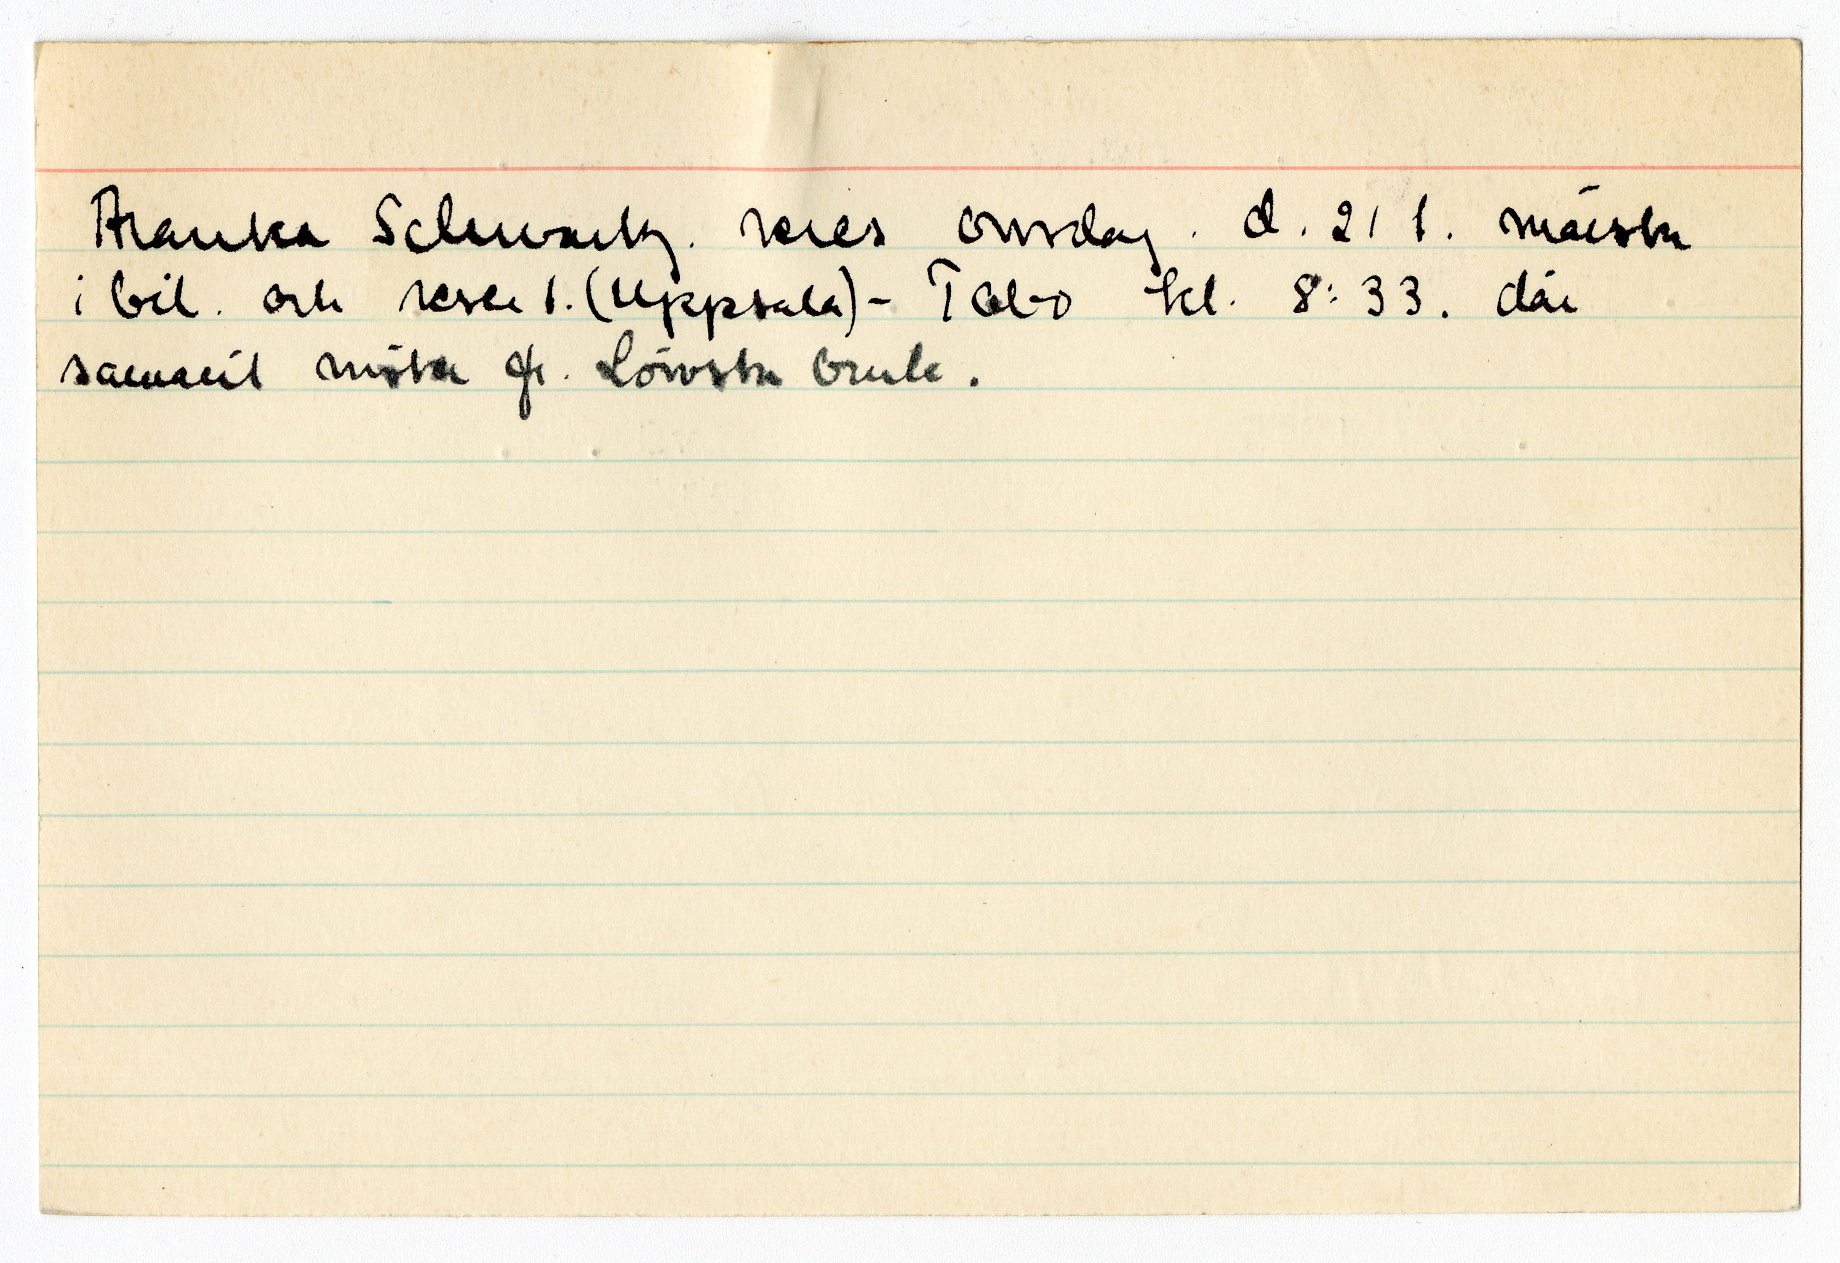 Aranka Schwartz. reser onsdag. d. 2/1. märsta
i bil. och reser t. (Uppsala) - Tobo kl. 8:33. där
samarit möter fr. Lövsta bruk.